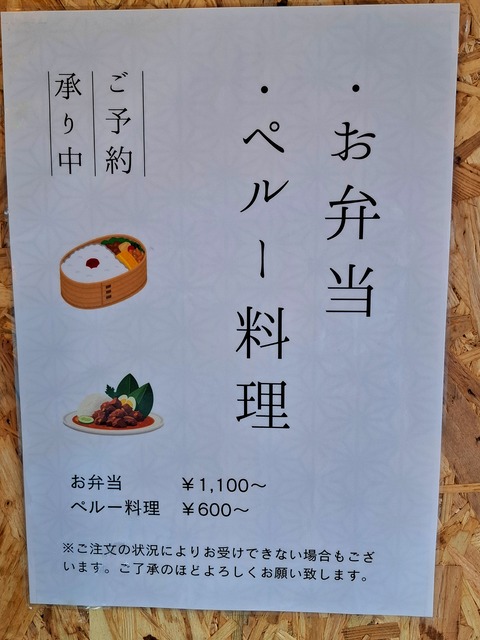 ・お弁当
・ペルー料理
ご予約
承り中
お弁当 ￥1,100～
ペルー料理 ￥600～
※ご注文の状況によりお受けできない場合もござ
います。ご了承のほどよろしくお願い致します。